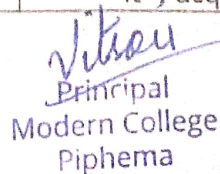 Principal
Modern College
Piphema